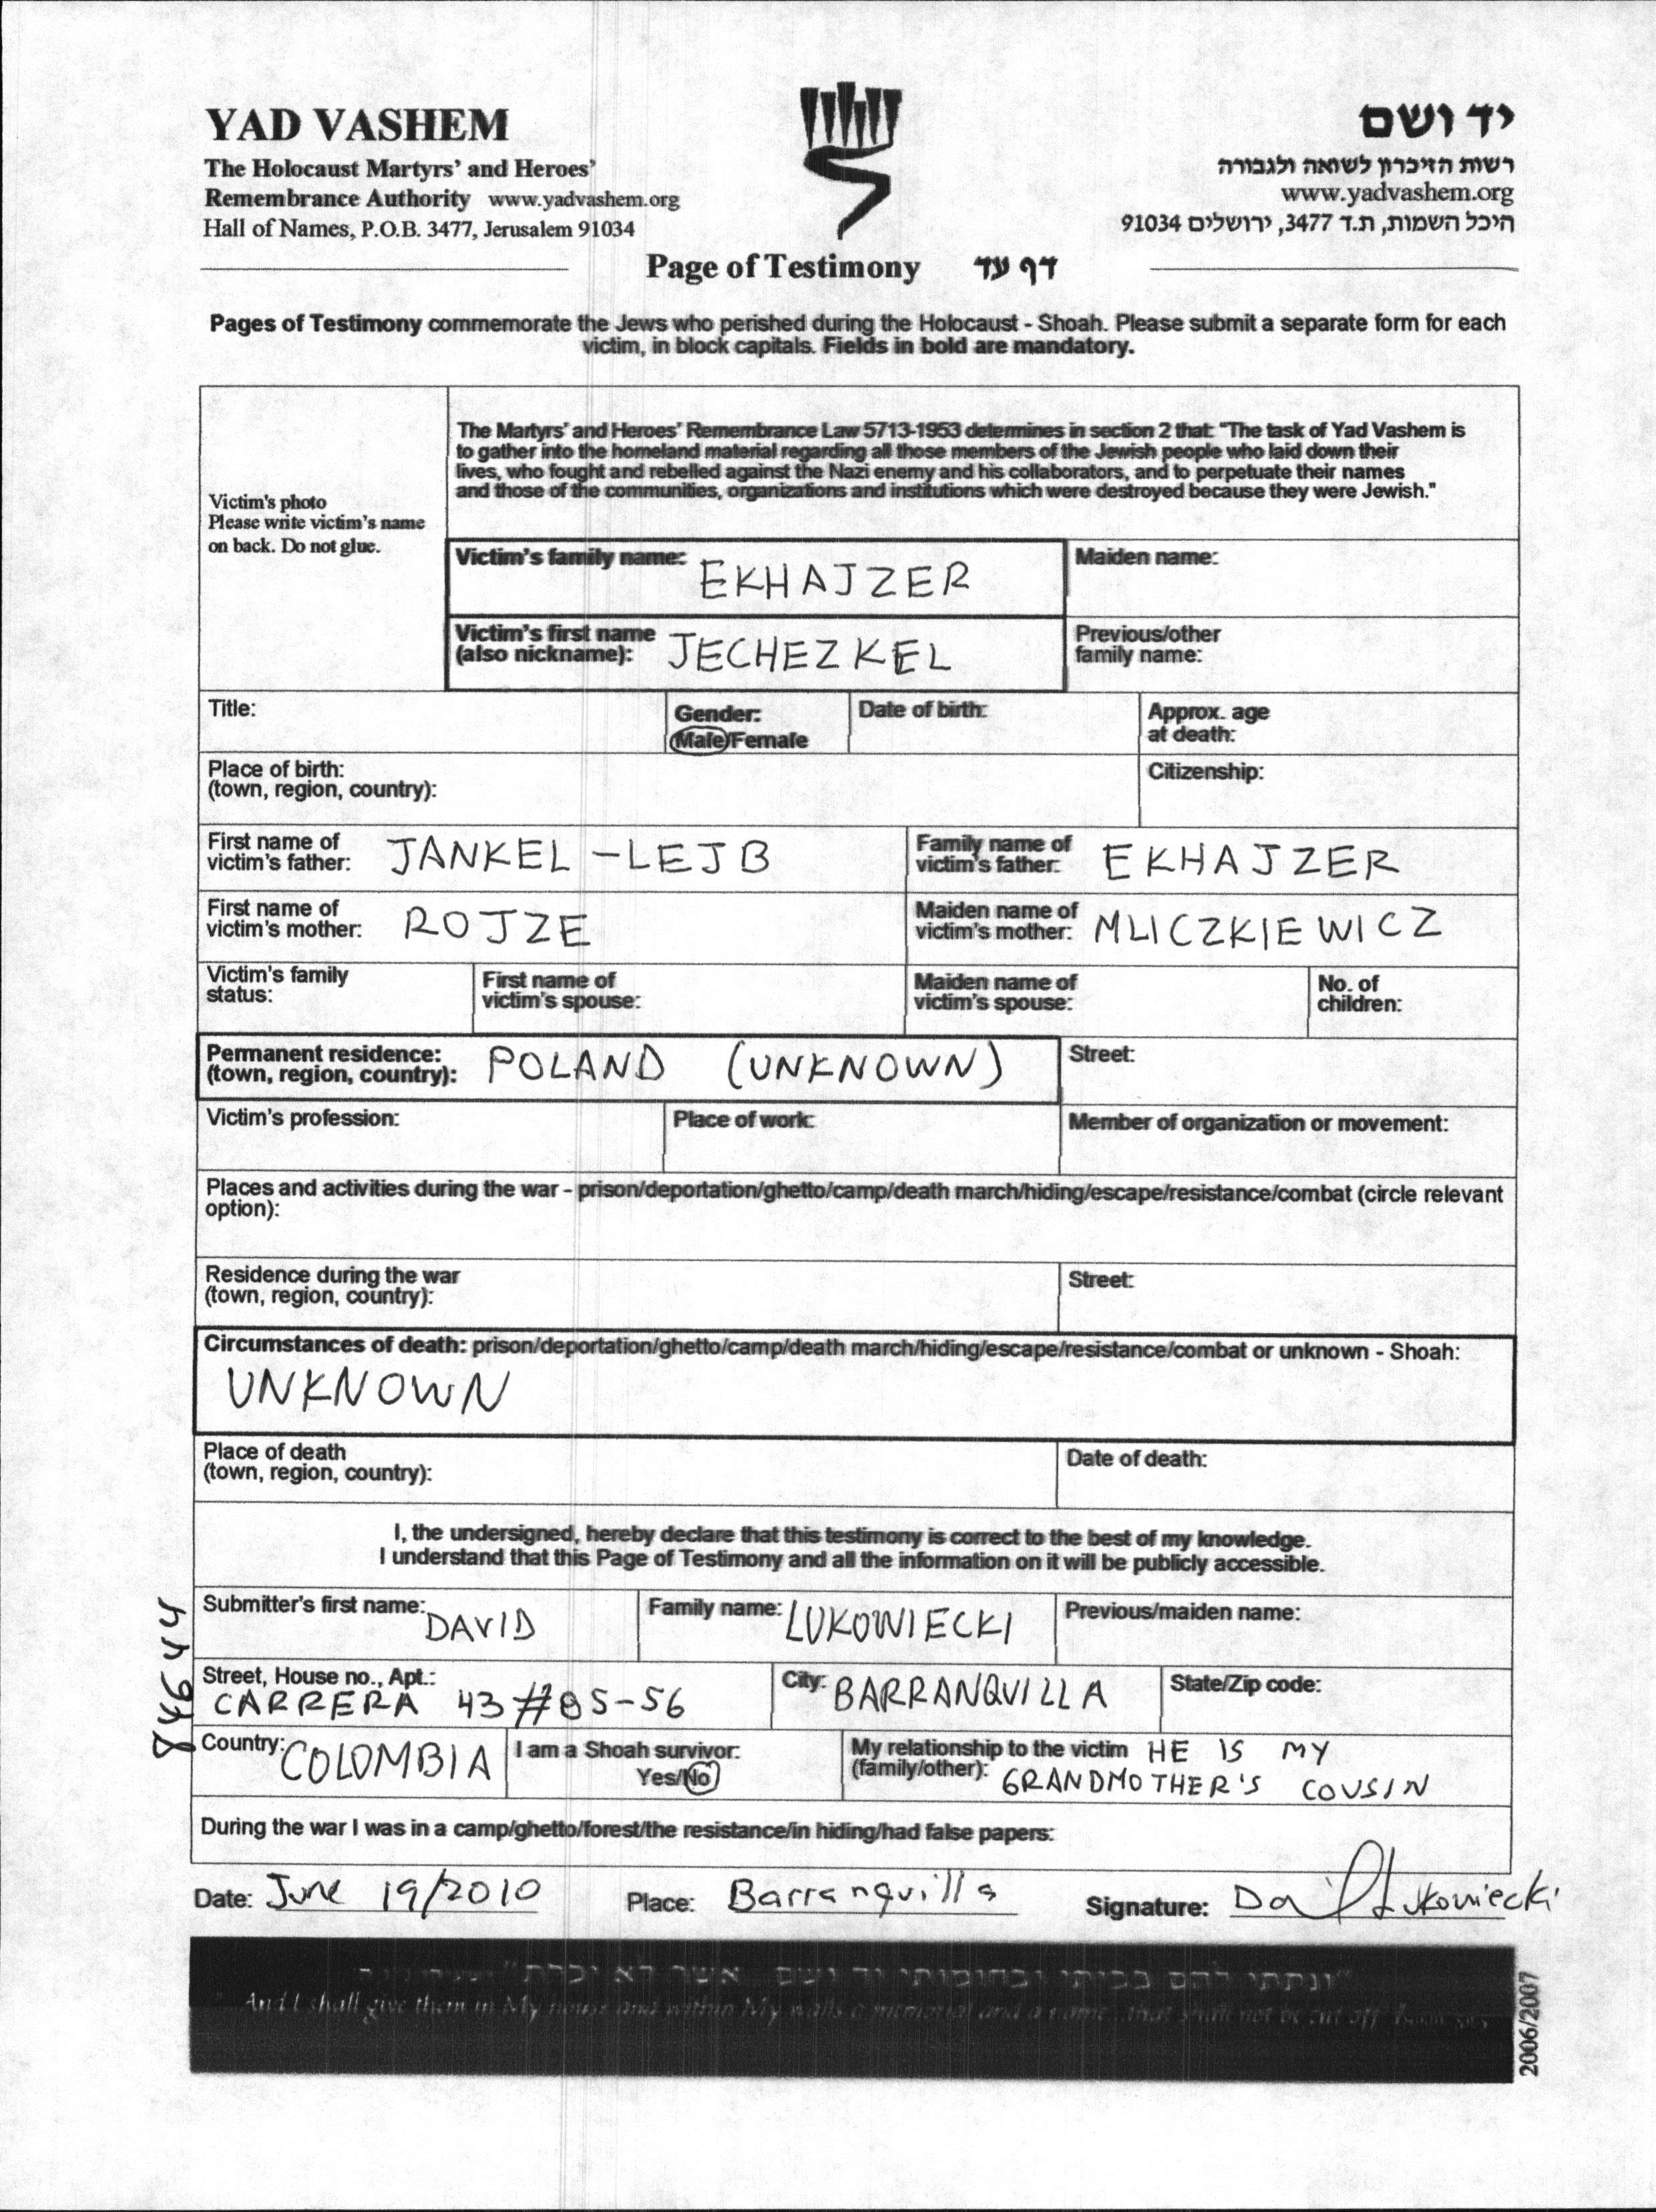 YAD VASHEM
The Holocaust Martyrs' and Heroes'
Remembrance Authority www.yadvashem.org
Hall of Names, P.O.B. 3477, Jerusalem 91034
יד ושם
רשות הזיכרון לשואה ולגבורה
www.yadvashem.org
היכל השמות, ת.ד 3477, ירושלים 91034
Page of Testimony דף עד
Pages of Testimony commemorate the Jews who perished during the Holocaust - Shoah. Please submit a separate form for each
victim, in block capitals. Fields in bold are mandatory.
Victim's photo
Please write victim's name
on back. Do not glue.
The Martyrs' and Heroes' Remembrance Law 5713-1953 determines in section 2 that: "The task of Yad Vashem is
to gather into the homeland material regarding all those members of the Jewish people who laid down their
lives, who fought and rebelled against the Nazi enemy and his collaborators, and to perpetuate their names
and those of the communities, organizations and institutions which were destroyed because they were Jewish."
Victim's family name: EKHAJZER
Maiden name:
Victim's first name
(also nickname): JECHEZKEL
Previous/other
family name:
Title:
Gender:
Male/Female
Date of birth:
Approx. age
at death:
Place of birth:
(town, region, country):
Citizenship:
First name of
victim's father: JANKEL-LEJB
Family name of
victim's father: EKHAJZER
First name of
victim's mother: ROJZE
Maiden name of
victim's mother: MLICZKIEWICZ
Victim's family
status:
First name of
victim's spouse:
Maiden name of
victim's spouse:
No. of
children:
Permanent residence:
(town, region, country): POLAND (UNKNOWN)
Street:
Victim's profession:
Place of work:
Member of organization or movement:
Places and activities during the war - prison/deportation/ghetto/camp/death march/hiding/escape/resistance/combat (circle relevant
option):
Residence during the war
(town, region, country):
Street:
Circumstances of death: prison/deportation/ghetto/camp/death march/hiding/escape/resistance/combat or unknown - Shoah:
UNKNOWN
Place of death
(town, region, country):
Date of death:
I, the undersigned, hereby declare that this testimony is correct to the best of my knowledge.
I understand that this Page of Testimony and all the information on it will be publicly accessible.
Submitter's first name: DAVID
Family name: LUKOWIECKI
Previous/maiden name:
Street, House no., Apt.:
CARRERA 43 #85-56
City: BARRANQUILLA
State/Zip code:
Country: COLOMBIA
I am a Shoah survivor:
Yes/No
My relationship to the victim HE IS MY
(family/other): GRANDMOTHER'S COUSIN
During the war I was in a camp/ghetto/forest/the resistance/in hiding/had false papers:
Date: June 19/2010
Place: Barranquilla
Signature: David Lukowiecki
"ונתתי להם בביתי ובחומותי יד ושם אשר לא יכרת"
"And I shall give them in My house and within My walls a memorial and a name...that shall not be cut off."
2006/2007